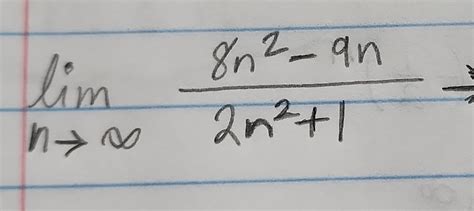 lim n→∞ (8n² - 9n)/(2n² + 1) →